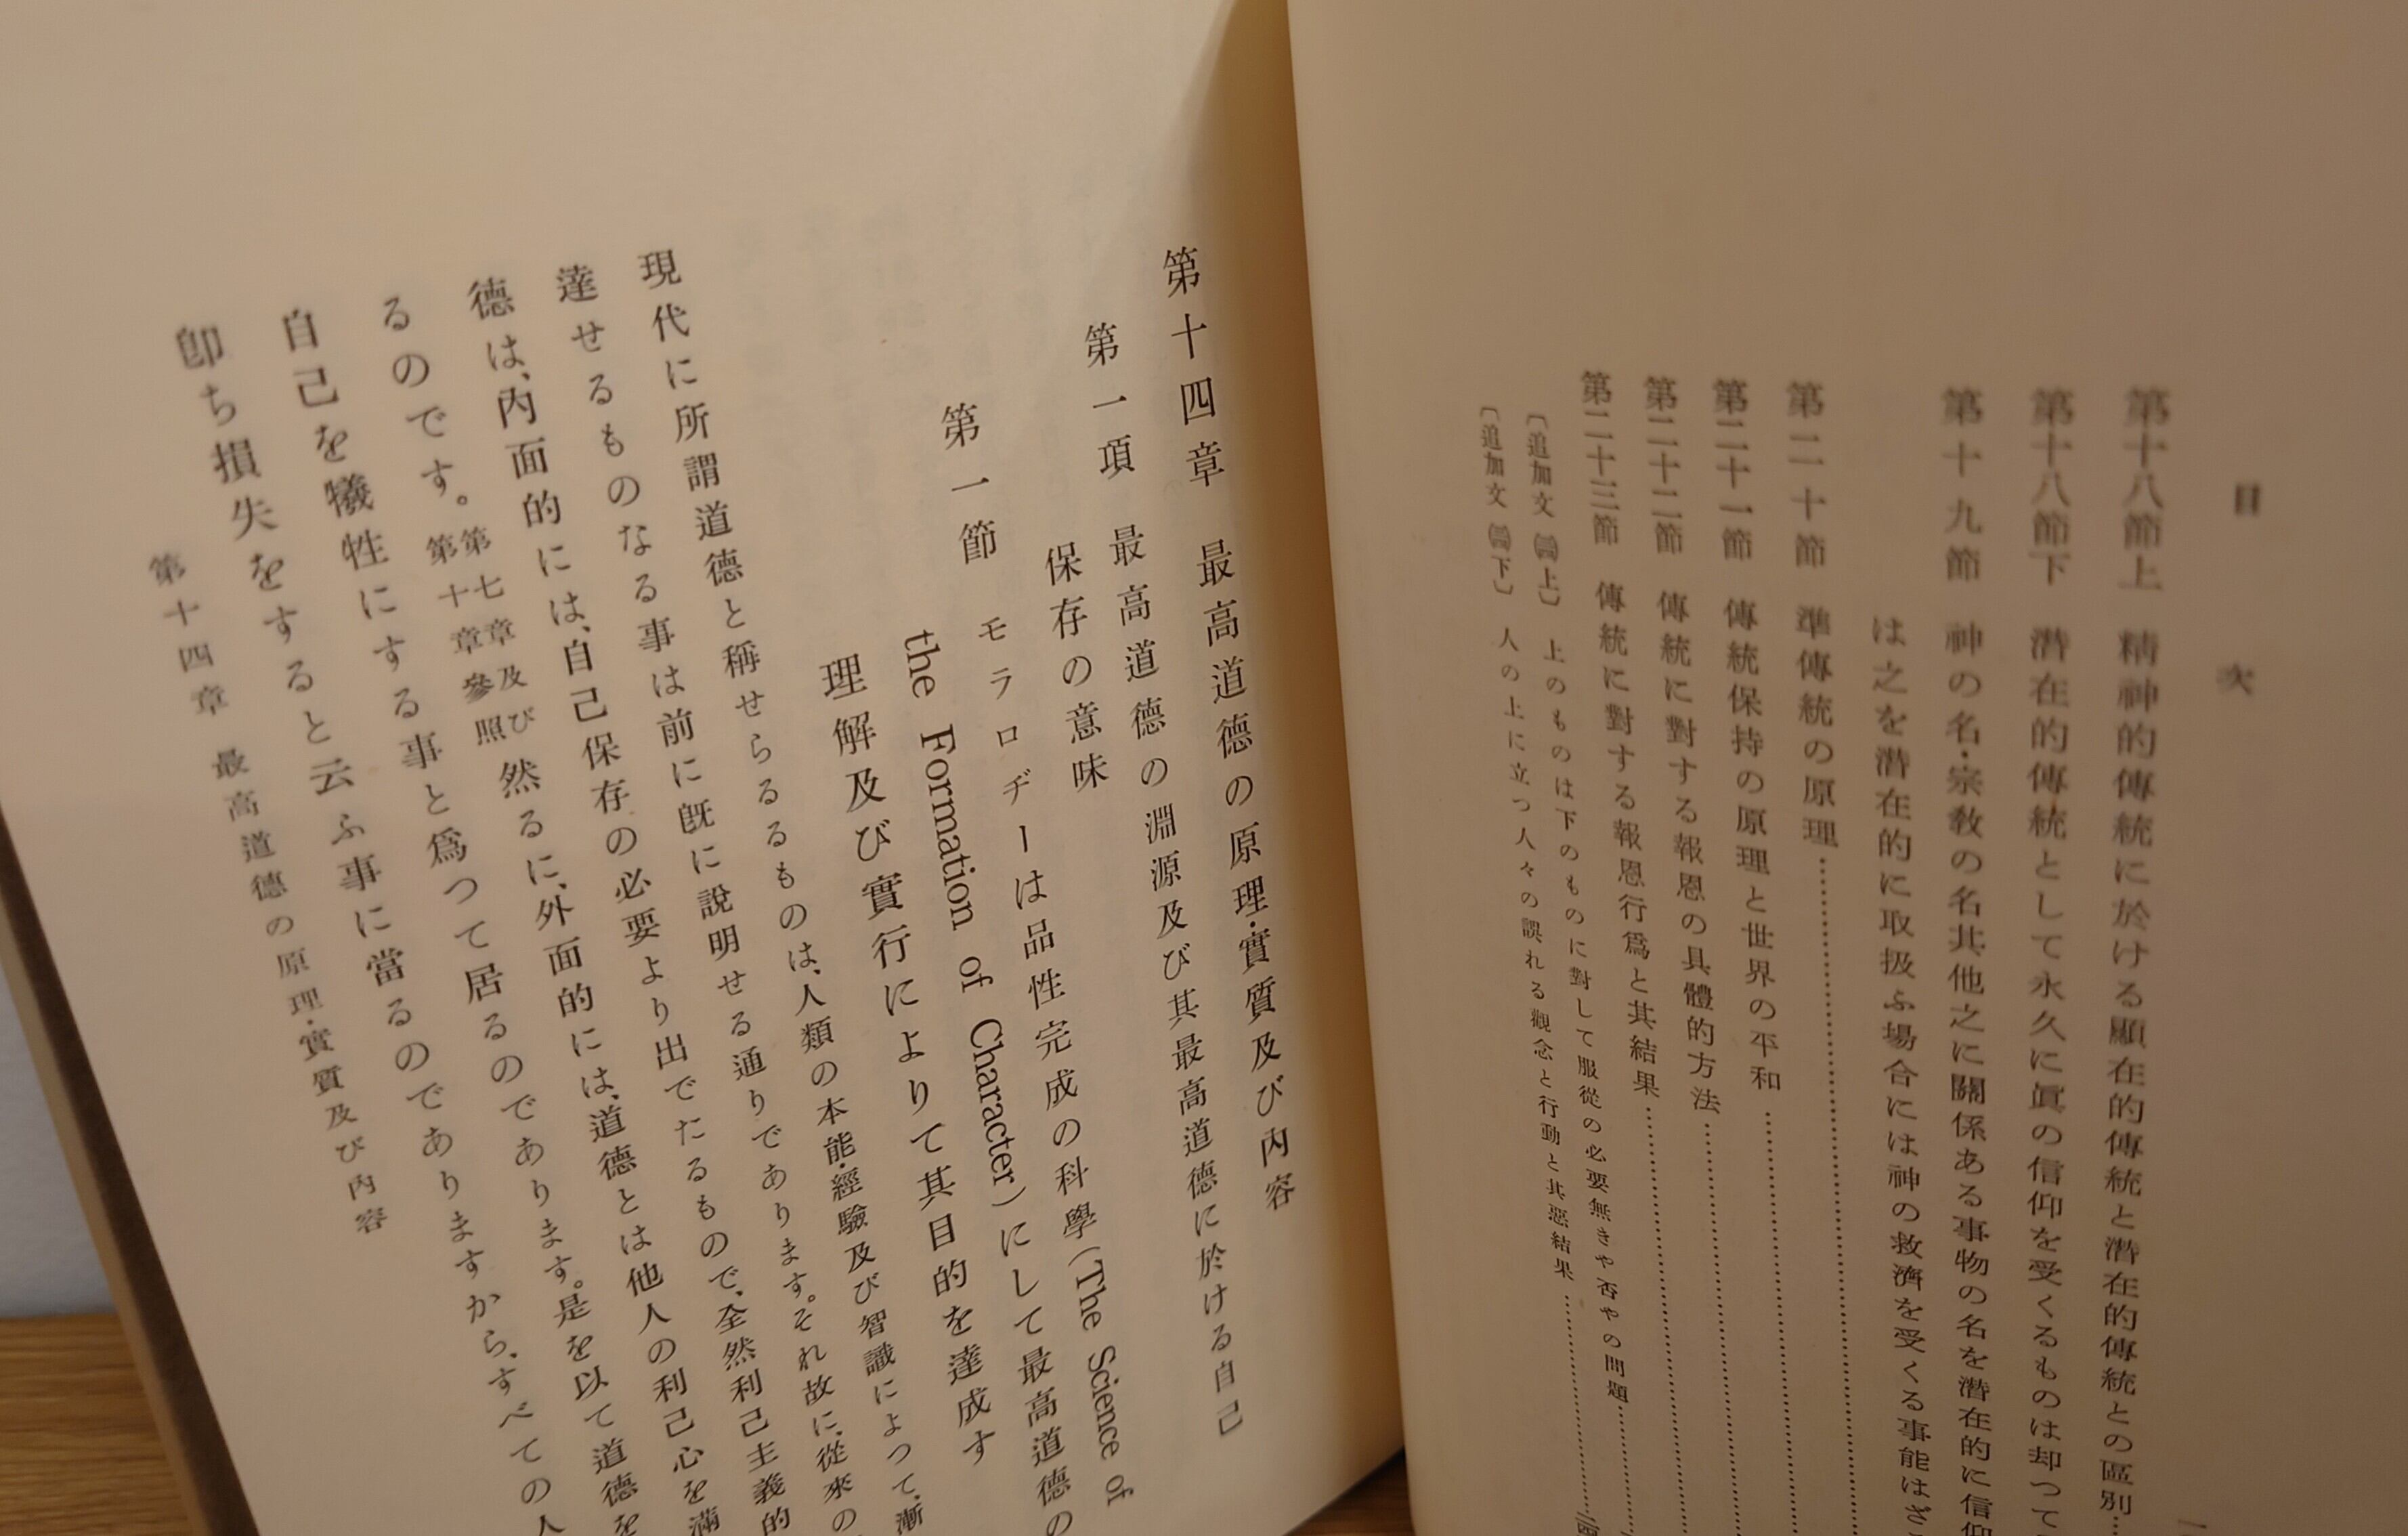 目次
第十八節上 精神的傳統に於ける顯在的傳統と潛在的傳統との區別……
第十八節下 潛在的傳統として永久に眞の信仰を受くるものは却つて
第十九節 神の名・宗敎の名其他之に關係ある事物の名を潛在的に信仰
は之を潛在的に取扱ふ場合には神の救濟を受くる事能はざ
第二十節 準傳統の原理……
第二十一節 傳統保持の原理と世界の平和……
第二十二節 傳統に對する報恩の具體的方法……
第二十三節 傳統に對する報恩行爲と其結果……
〔追加文 上〕 上のものは下のものに對して服從の必要無きや否やの問題……
〔追加文 下〕 人の上に立つ人々の誤れる觀念と行動と其惡結果……
第十四章 最高道德の原理・實質及び內容
第一項 最高道德の淵源及び其最高道德に於ける自己
保存の意味
第一節 モラロヂーは品性完成の科學(The Science of
the Formation of Character)にして最高道德の
理解及び實行によりて其目的を達成す
現代に所謂道德と稱せらるるものは、人類の本能・經驗及び智識によつて、漸
達せるものなる事は前に旣に說明せる通りであります。それ故に、從來の
德は、內面的には、自己保存の必要より出でたるもので、全然利己主義的
るのです。第七章及び第十章參照然るに、外面的には、道德とは他人の利己心を滿
自己を犧牲にする事と爲つて居るのであります。是を以て道德を
卽ち損失をすると云ふ事に當るのでありますから、すべての人
第十四章 最高道德の原理・實質及び內容